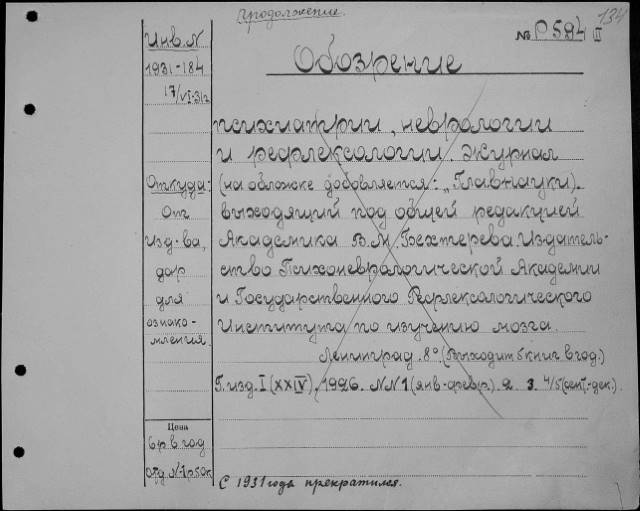 Продолжение.
134
№ Р 594 II
Инв. N
1931-184
17/VI-31 г
Обозрение
психиатрии, неврологии
и рефлексологии. Журнал
(на обложке добовляется: „Главнауки).
выходящий под общей редакцией
Академика В. М. Бехтерева. Издатель-
ство Психоневрологической Академии
и Государственного Рефлексологического
Института по изучению мозга.
Ленинград. 8°. (Выходит 5 книг в год.)
Г. изд. I (XXIV). 1926. NN 1 (янв-февр). 2. 3. 4/5 (сент.-дек.).
Откуда:
От
Изд-ва,
дар
для
ознако-
мления.
Цена
6 р в год
отд N-1р50к
С 1931 года прекратился.